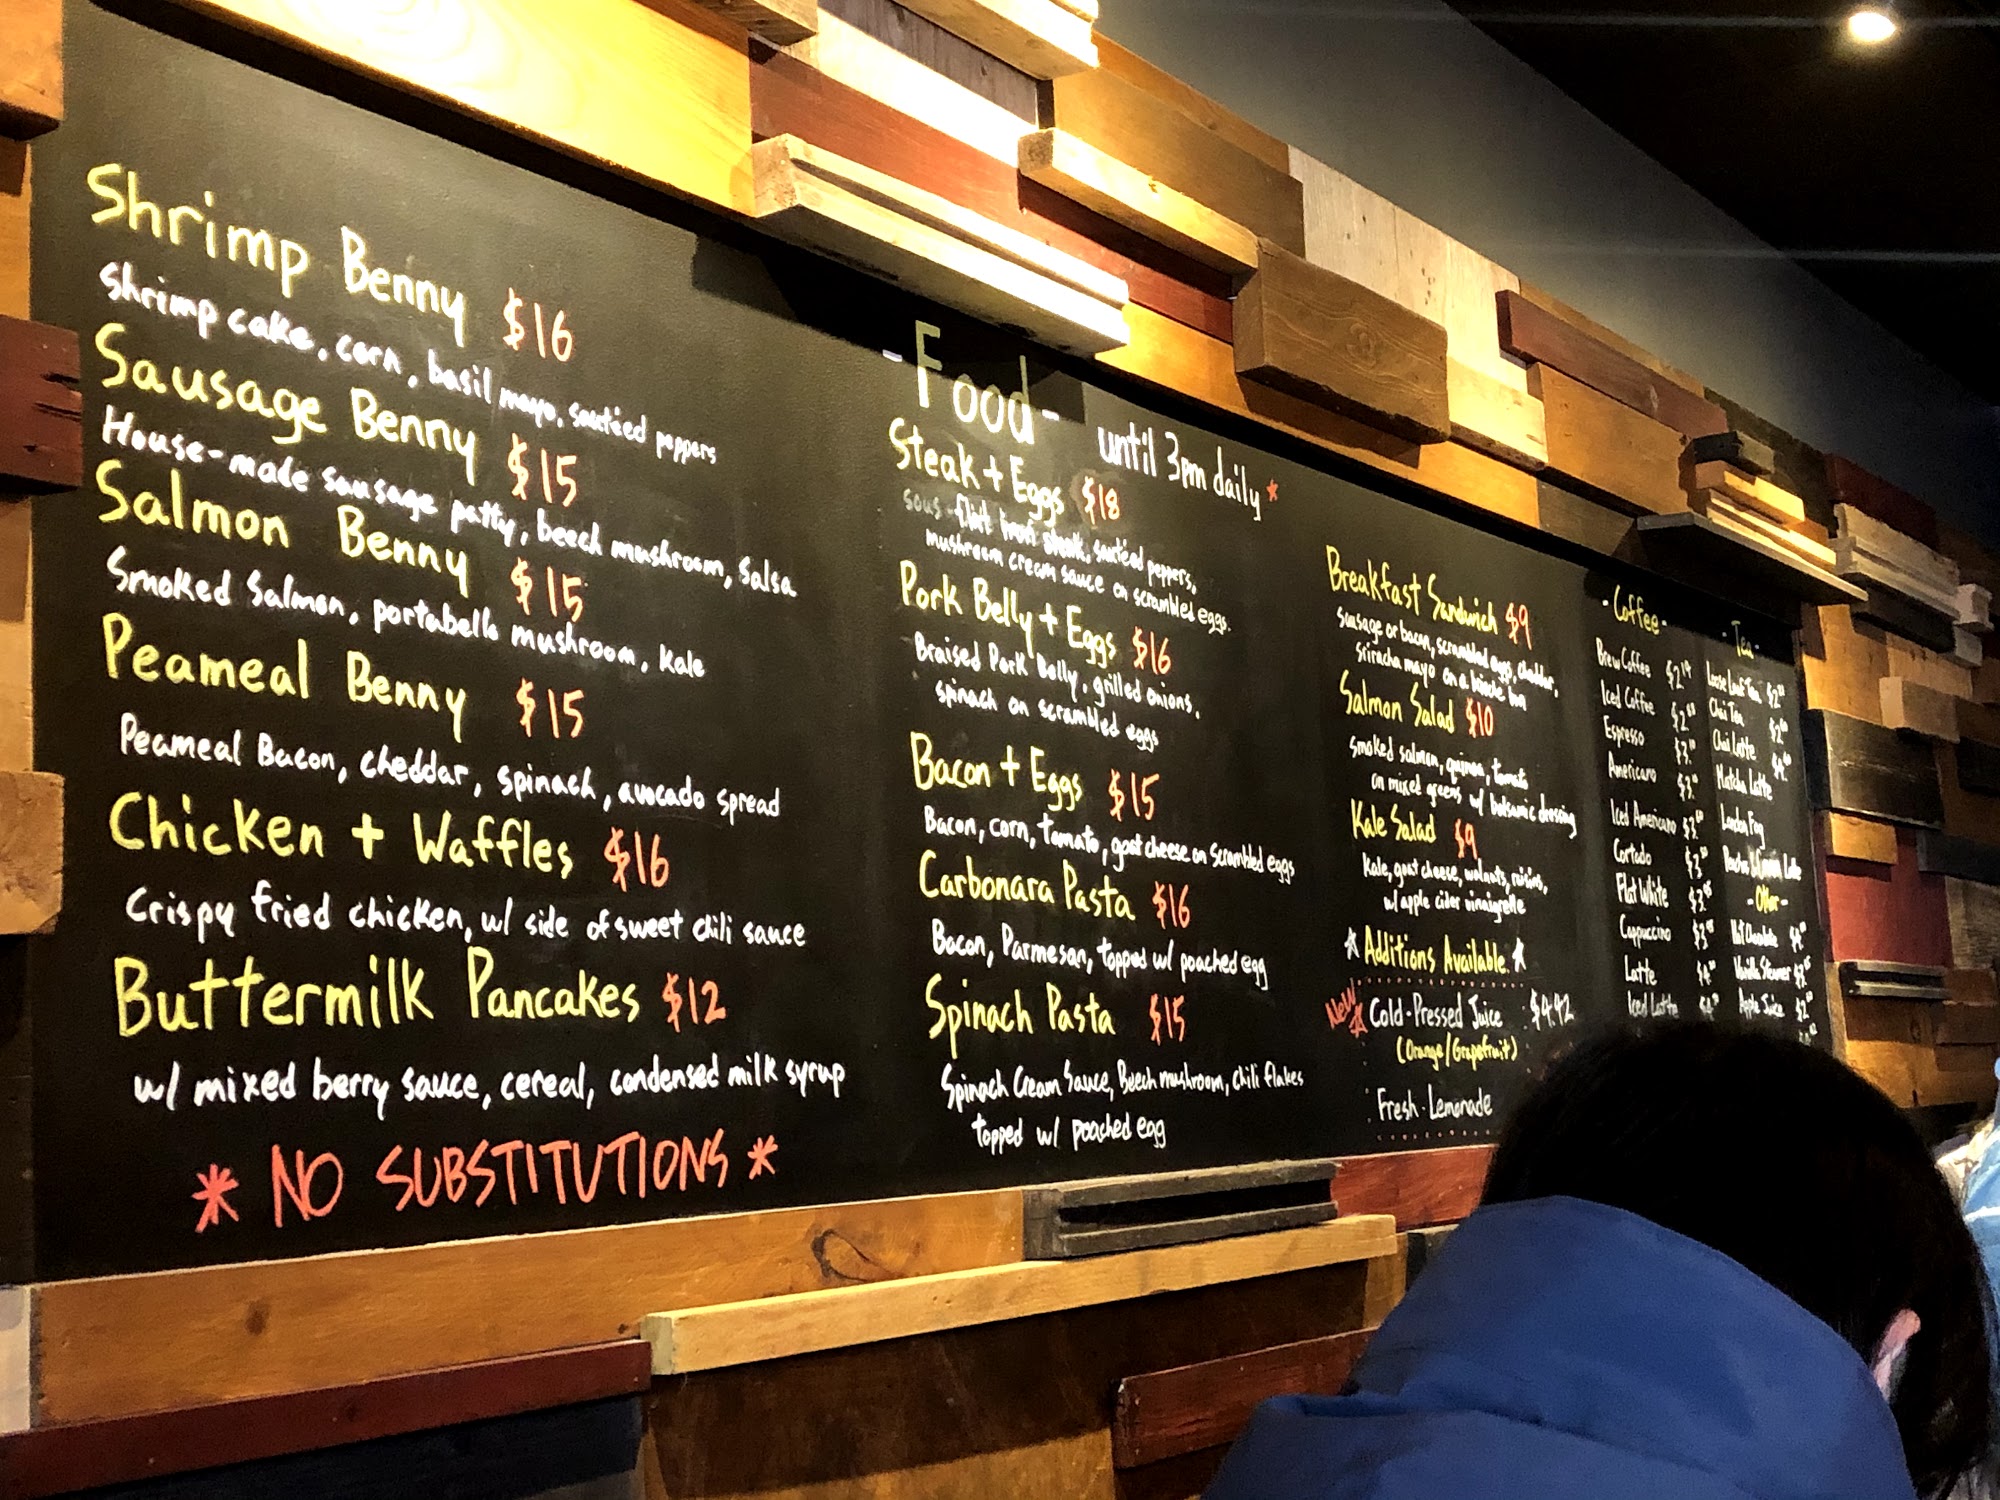 Shrimp Benny $16
Shrimp cake, corn, basil mayo, sautéed peppers
Sausage Benny $15
House-made sausage patty, beech mushroom, salsa
Salmon Benny $15
Smoked Salmon, portabello mushroom, kale
Peameal Benny $15
Peameal Bacon, cheddar, spinach, avocado spread
Chicken + Waffles $16
Crispy fried chicken, w/ side of sweet chili sauce
Buttermilk Pancakes $12
w/ mixed berry sauce, cereal, condensed milk syrup
* NO SUBSTITUTIONS *
- Food - until 3pm daily *
Steak + Eggs $18
sautéed peppers,
mushroom cream sauce on scrambled eggs.
Pork Belly + Eggs $16
Braised Pork Belly, grilled onions,
spinach on scrambled eggs
Bacon + Eggs $15
Bacon, corn, tomato, goat cheese on scrambled eggs
Carbonara Pasta $16
Bacon, Parmesan, topped w/ poached egg
Spinach Pasta $15
Spinach Cream Sauce, Beech mushroom, chili flakes
topped w/ poached egg
Breakfast Sandwich $9
sausage or bacon, scrambled eggs, cheddar,
sriracha mayo on a bun
Salmon Salad $10
smoked salmon, quinoa, tomato
on mixed greens w/ balsamic dressing
Kale Salad $9
Kale, goat cheese, walnuts, raisins,
w/ apple cider vinaigrette
* Additions Available *
New * Cold-Pressed Juice $4.42
(Orange/Grapefruit)
Fresh Lemonade
- Coffee -
Brew Coffee
Iced Coffee
Espresso
Americano
Iced Americano
Cortado
Flat White
Cappuccino
Latte
Iced Latte
- Tea -
Loose Leaf Tea
Chai Tea
Chai Latte
Matcha Latte
London Fog
- Other -
Hot Chocolate
Vanilla Steamer
Apple Juice